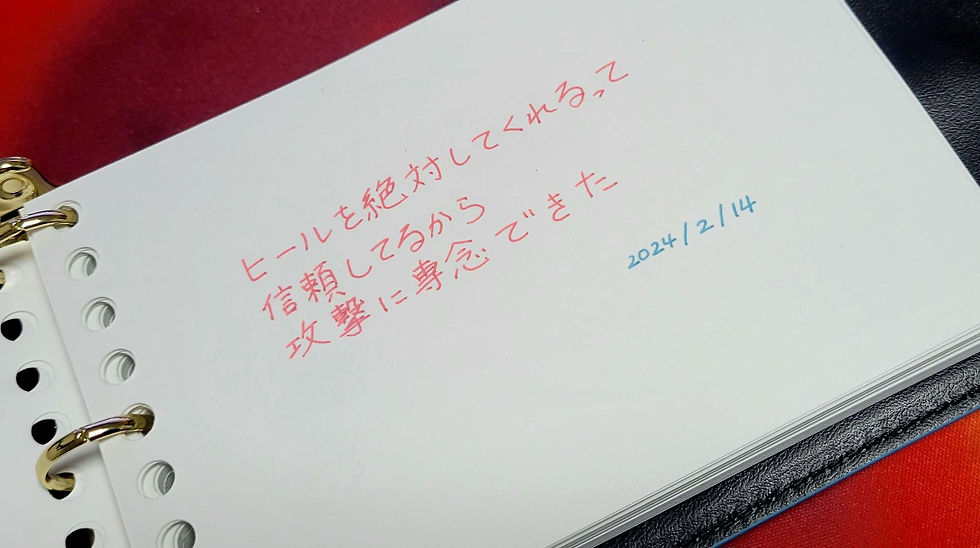 ヒールを絶対してくれるって
信頼してるから
攻撃に専念できた
2024/2/14